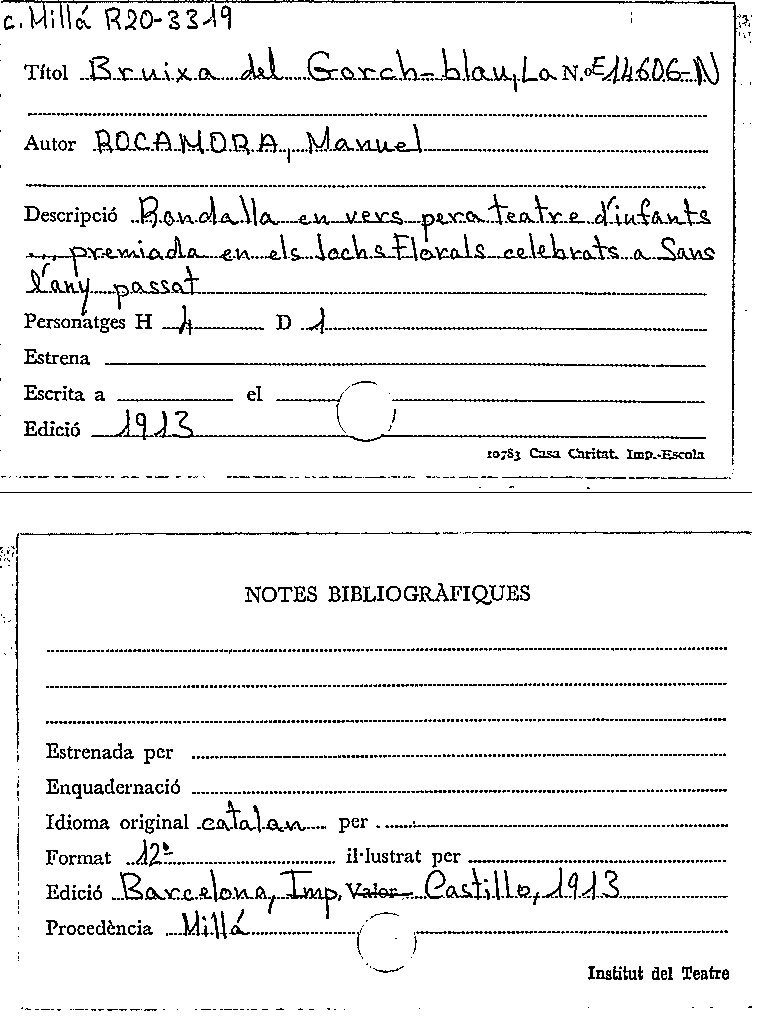 c. Millá R20-3319
Títol Bruixa del Gorch-blau, La N.º E14606-N
Autor ROCAMORA, Manuel
Descripció Rondalla en vers pera teatre d'infants
... premiada en els Jochs Florals celebrats a Sans
l'any passat
Personatges H 4 D 1
Estrena
Escrita a el
Edició 1913
10783 Casa Caritat. Imp.-Escola
NOTES BIBLIOGRÀFIQUES
Estrenada per
Enquadernació
Idioma original catalan per
Format 12º il·lustrat per
Edició Barcelona, Imp. Valor Castillo, 1913
Procedència Millá
Institut del Teatre